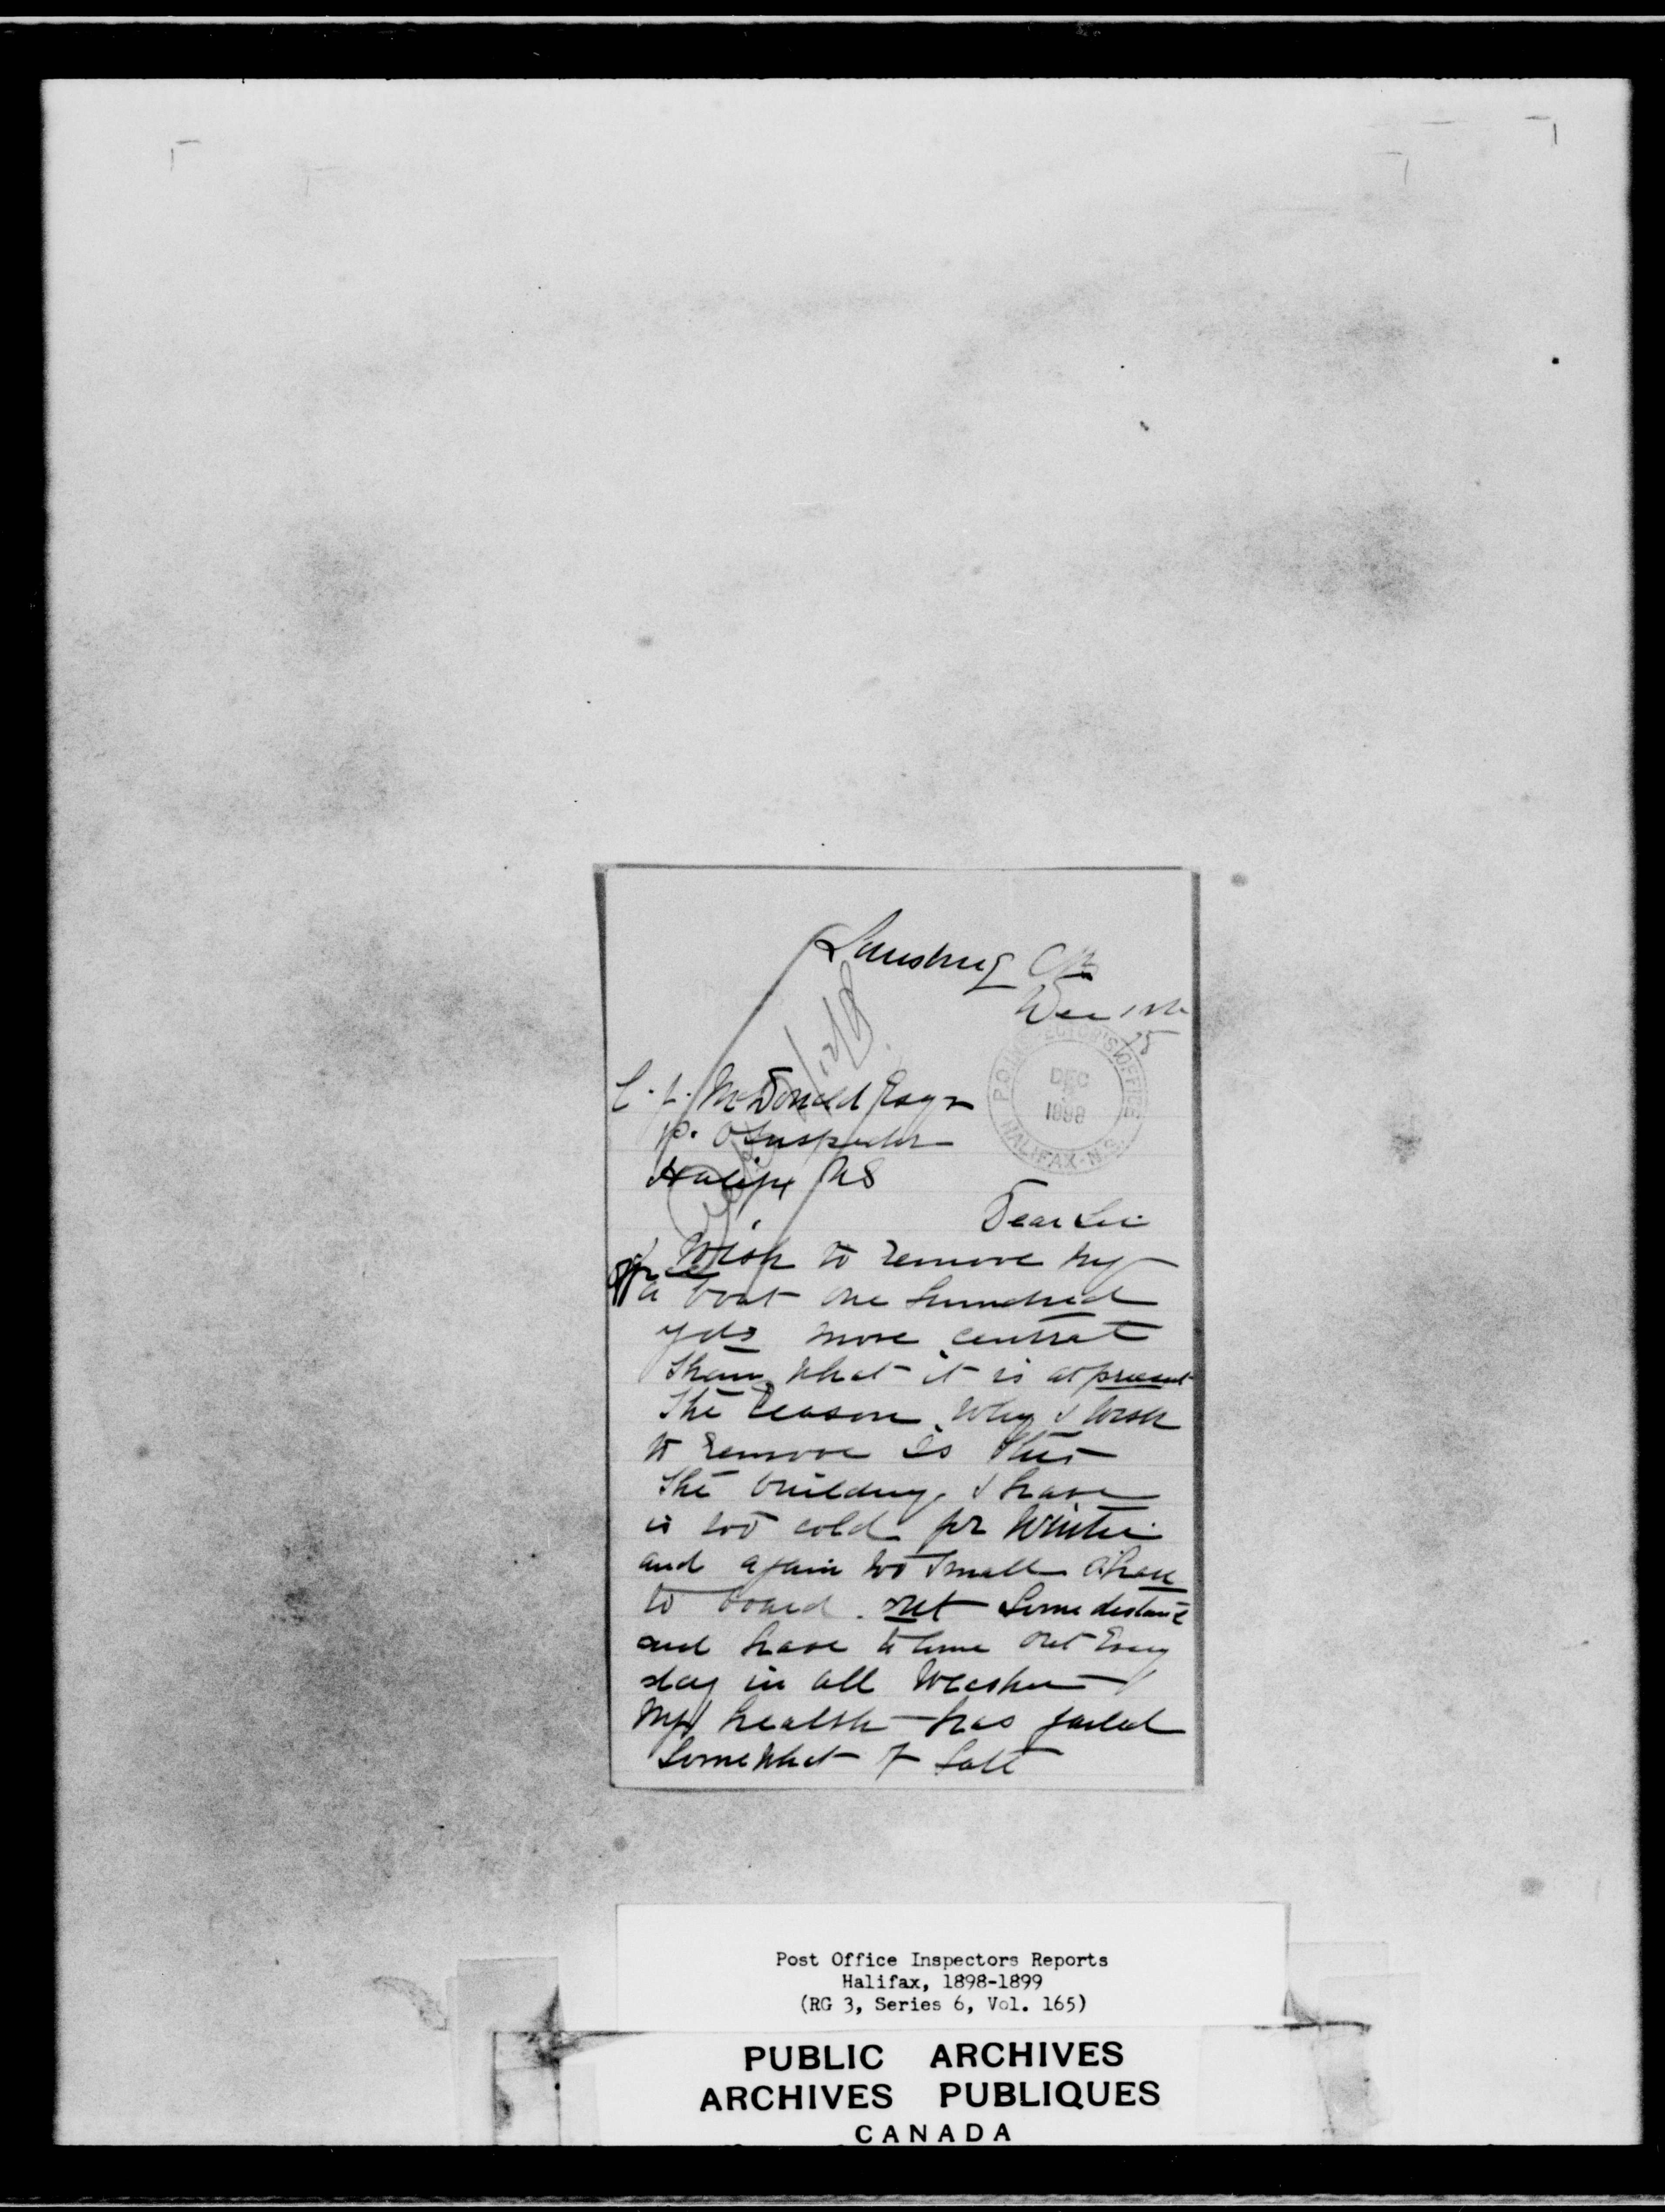 Louisburg CB
Dec
P.O. INSPECTOR'S OFFICE
DEC
1898
HALIFAX - N.S.
C. J. McDonald Esqr
P. O Inspector
Halifx NS
Dear Sir
I Wish to remove my
office
a bout one hundred
yds more central
than what it is at present
The reason Why I wish
to remove is this
The building I have
is too cold for Winter
and again too small I have
to board out some distance
and have to come out Every
day in all Weather
My health has failed
Somewhat of late
Post Office Inspectors Reports
Halifax, 1898-1899
(RG 3, Series 6, Vol. 165)
PUBLIC ARCHIVES
ARCHIVES PUBLIQUES
CANADA